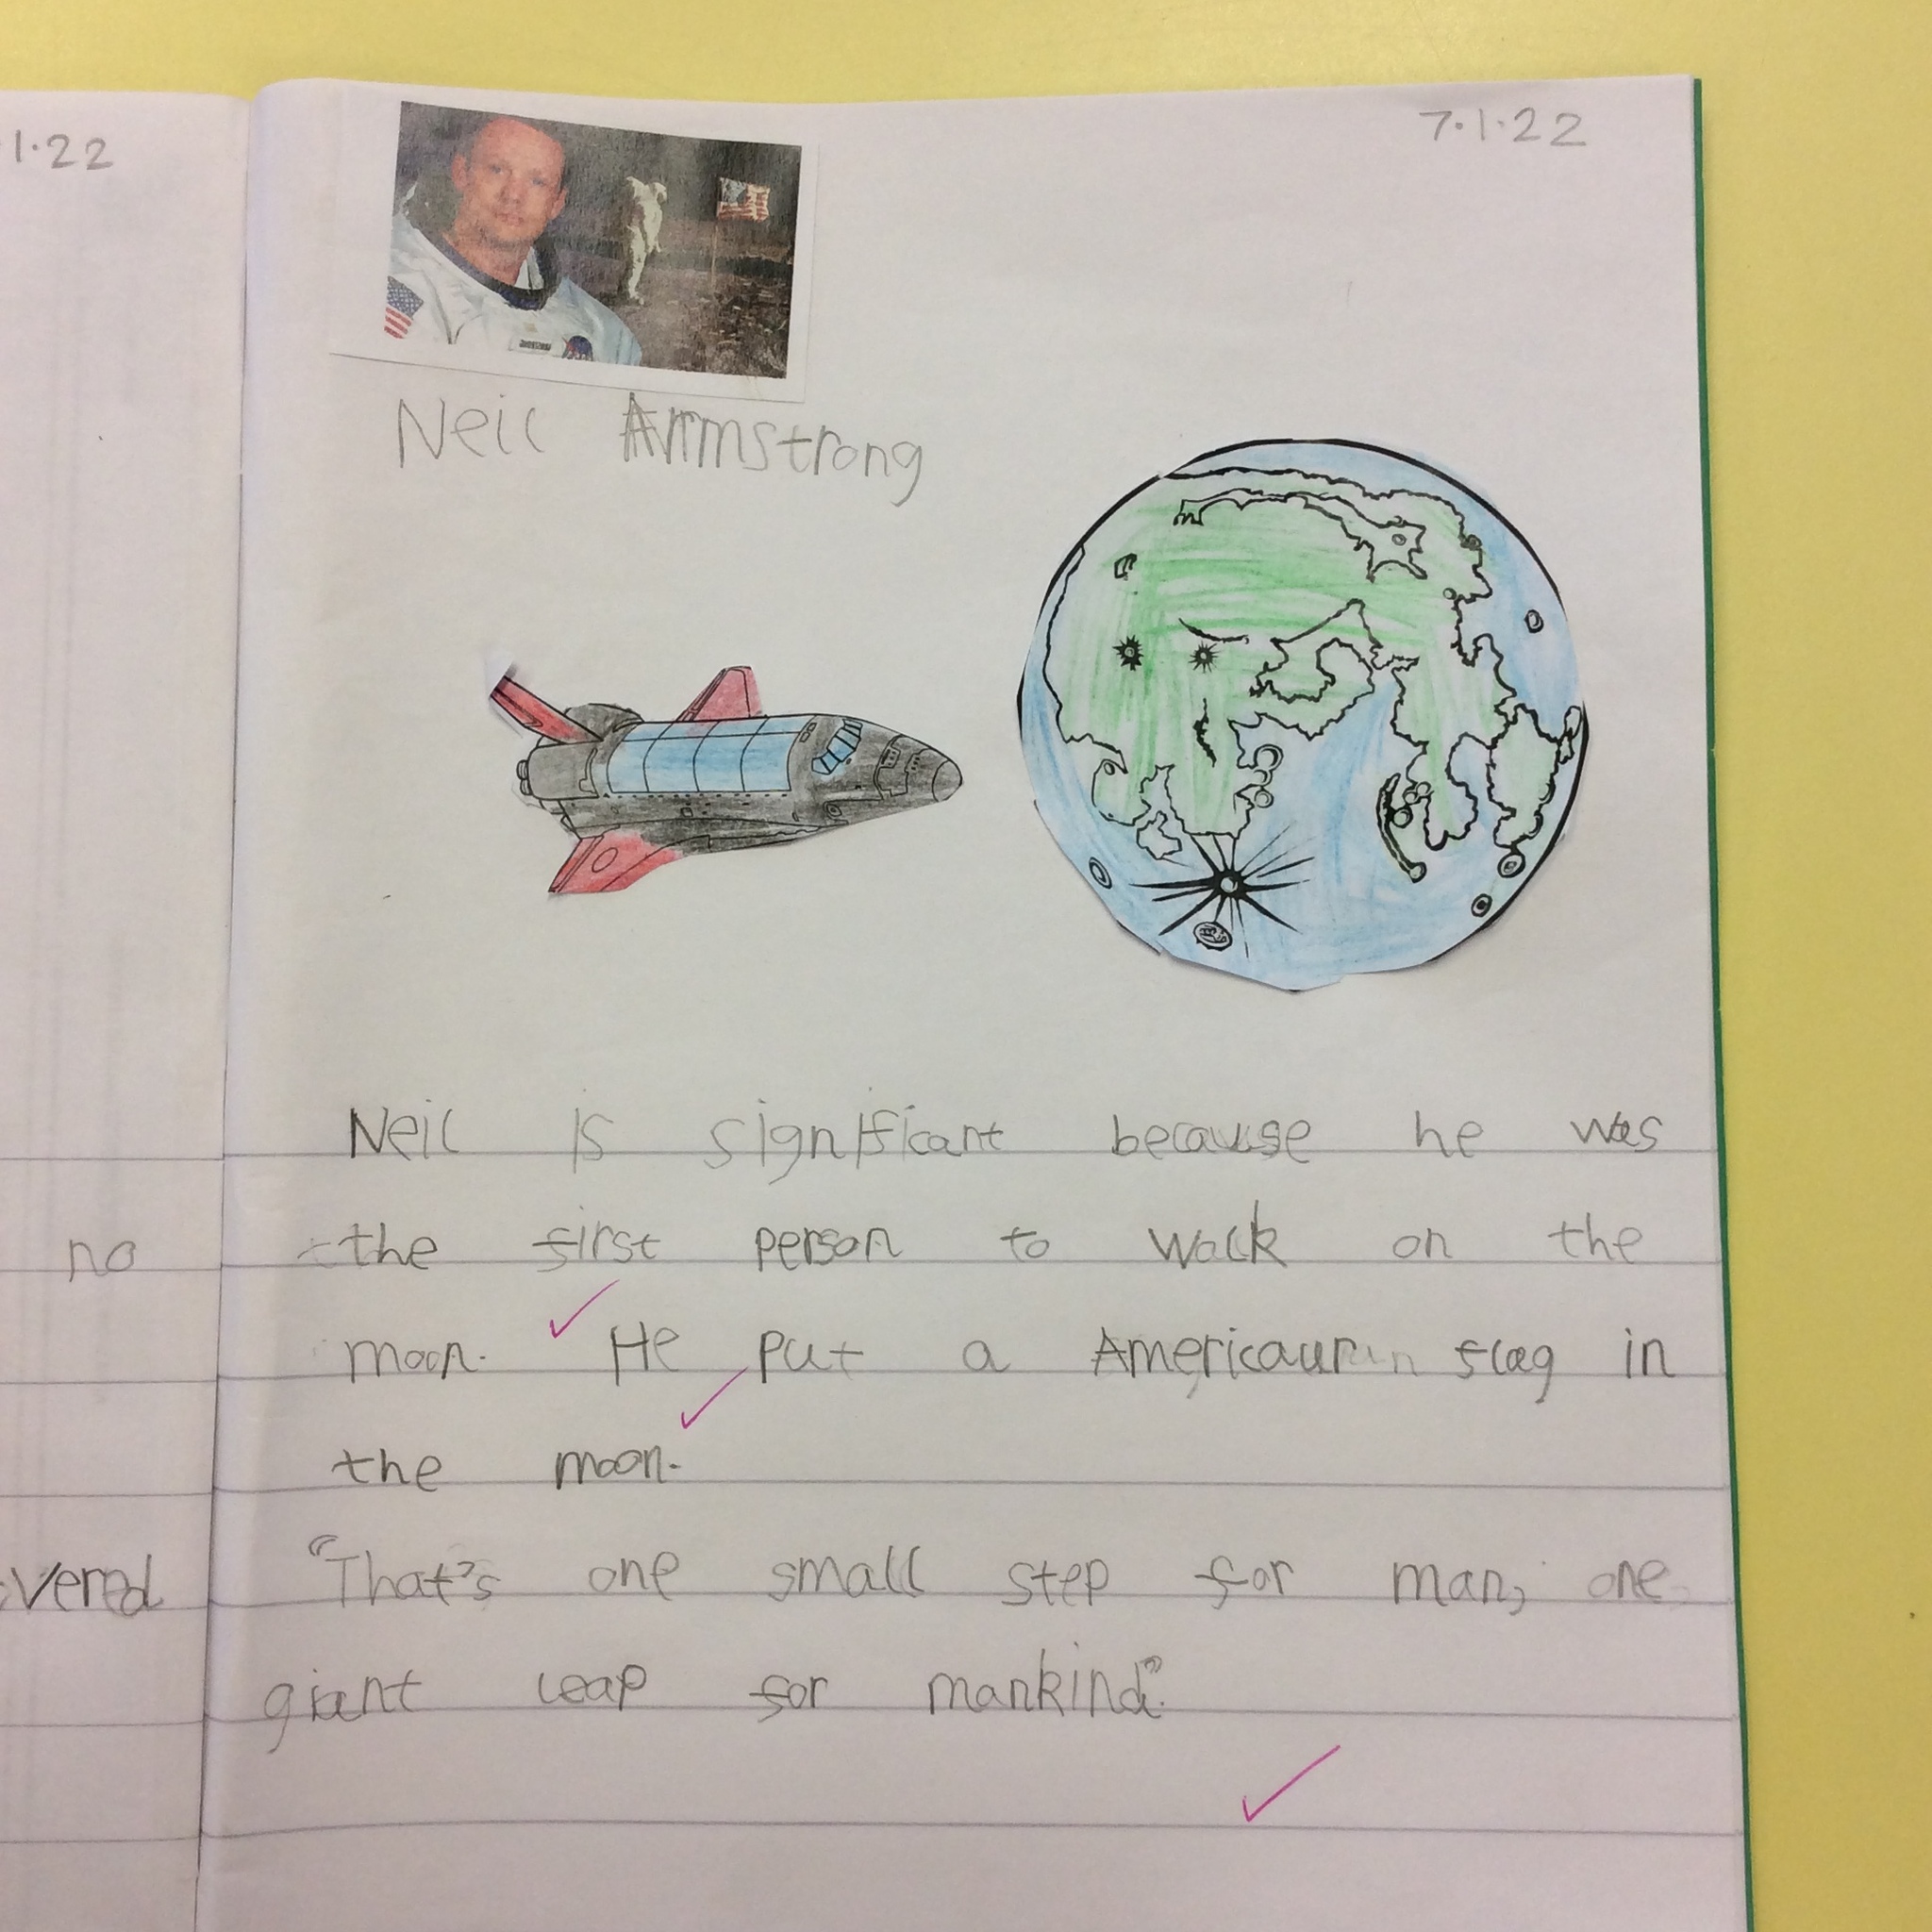 1.22
7.1.22
Neil Armstrong
Neil is significant because he was
no
the first person to walk on the
moon. He put a flag in
the moon.
vered
"That's one small step for man, one
giant leap for mankind".